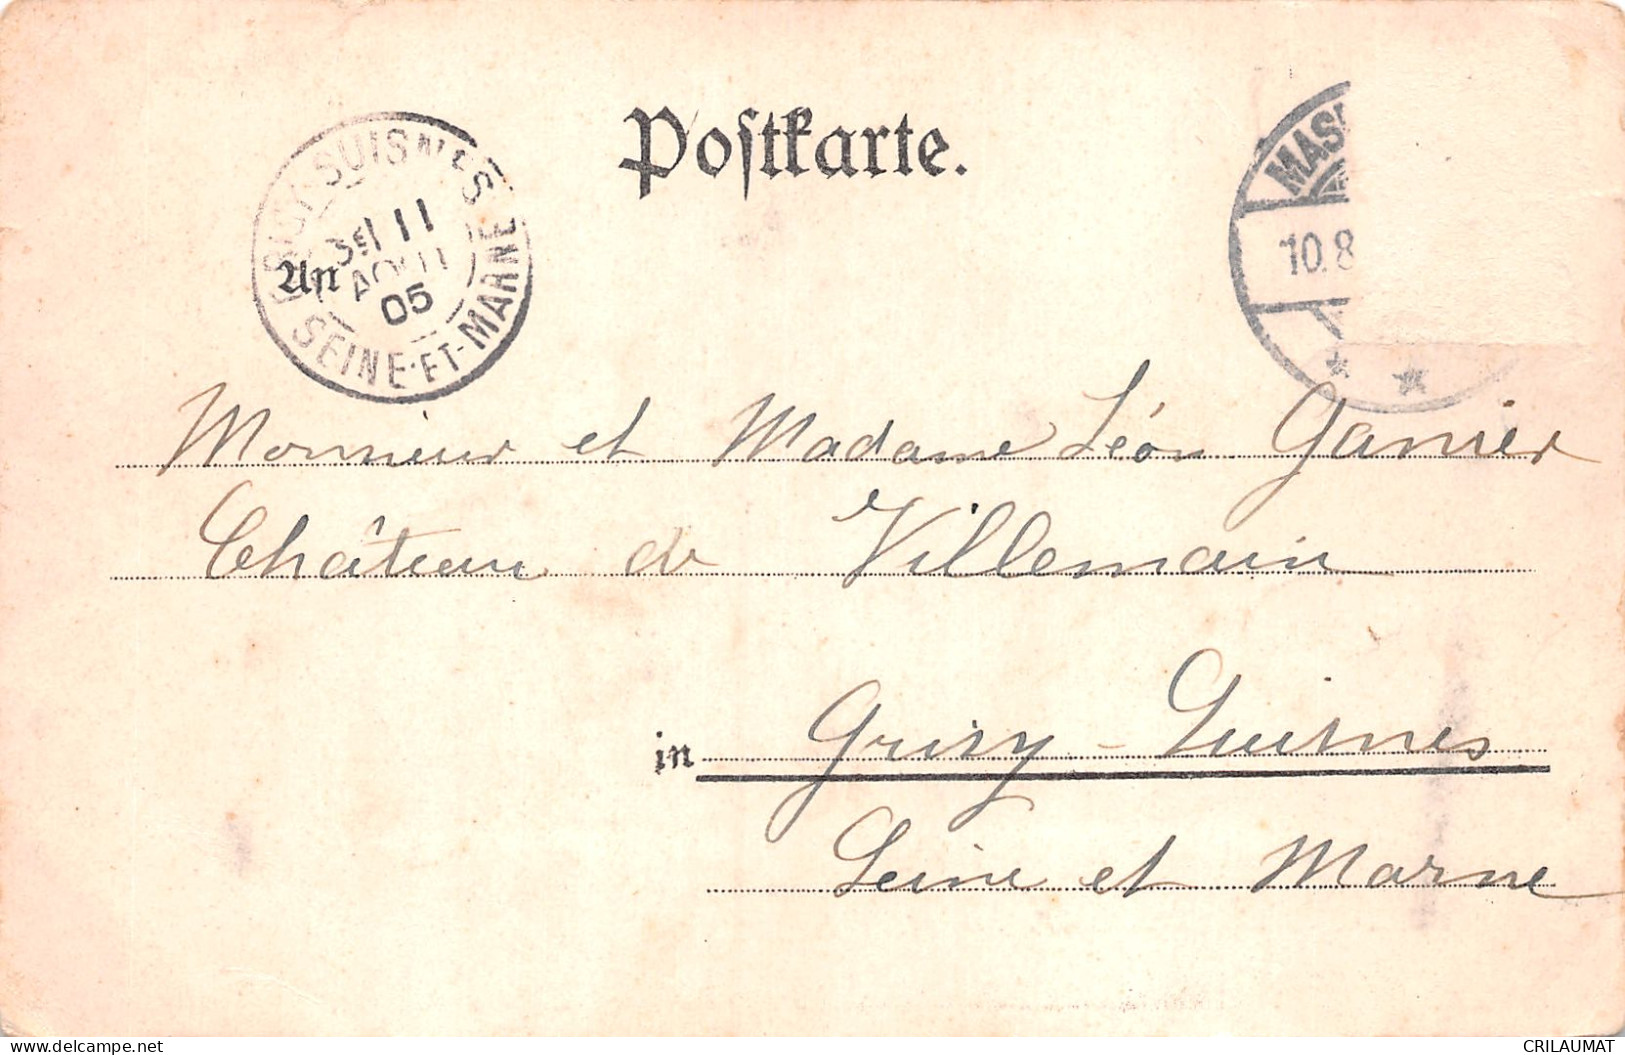 Postkarte.
GRISY-SUISNES
11
AOUT
05
SEINE-ET-MARNE
MAS
10.8
An
Monsieur et Madame Léon Garnier
Château de Villemain
in Grisy-Suisnes
Seine et Marne
delcampe.net
CRILAUMAT